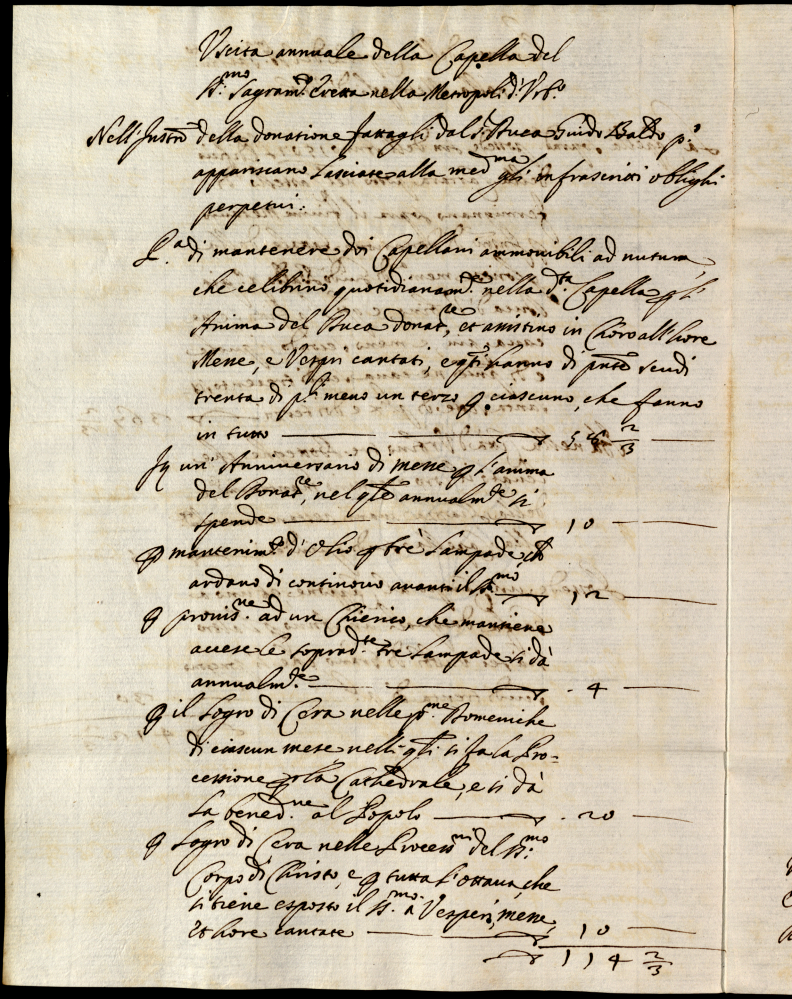 Uscita annuale della Capella del
S.mo Sagram.to Eretta nella Metropoli d'Urb.o
Nell'Instro della donatione fattagli dal S.r Duca Guido Baldo p.o
appariscano Lasciate alla med.ma gli infrascritti oblighi
perpetui.
P.a di mantenere doi Capellani ammovibili ad nutum,
che celebrino quotidianam.te nella d.ta Capella p l'
Anima del Duca Donat.re, et assistino in Choro all'hore
Messe, e Vespri cantati, e q.ti hanno di pnte scudi
trenta di p.li meno un terzo p ciascuno, che fanno
in tutto 58 2/3
In un' Anniversario di messe p l'anima
del Donat.re, nel qle annualm.te si
spende 10
p mantenim.to d'Olio p tre Lampade ch
ardano di continovo avanti il S.mo 12
p provis.ne ad un Chierico, che mantiene
accese le soprad.te tre Lampade si dà
annualm.te 4
p il Logro di Cera nelle p.me Domeniche
di ciascun mese nelli qli si fa la Pro-
cessione p la Cathedrale, e si dà
la bened.ne al Popolo 20
p Logro di Cera nelle Process.ni del S.mo
Corpo di Christo, e p tutta l'ottava, che
si tiene esposto il S.mo a Vesperi, messe,
et hore cantate 10
114 2/3